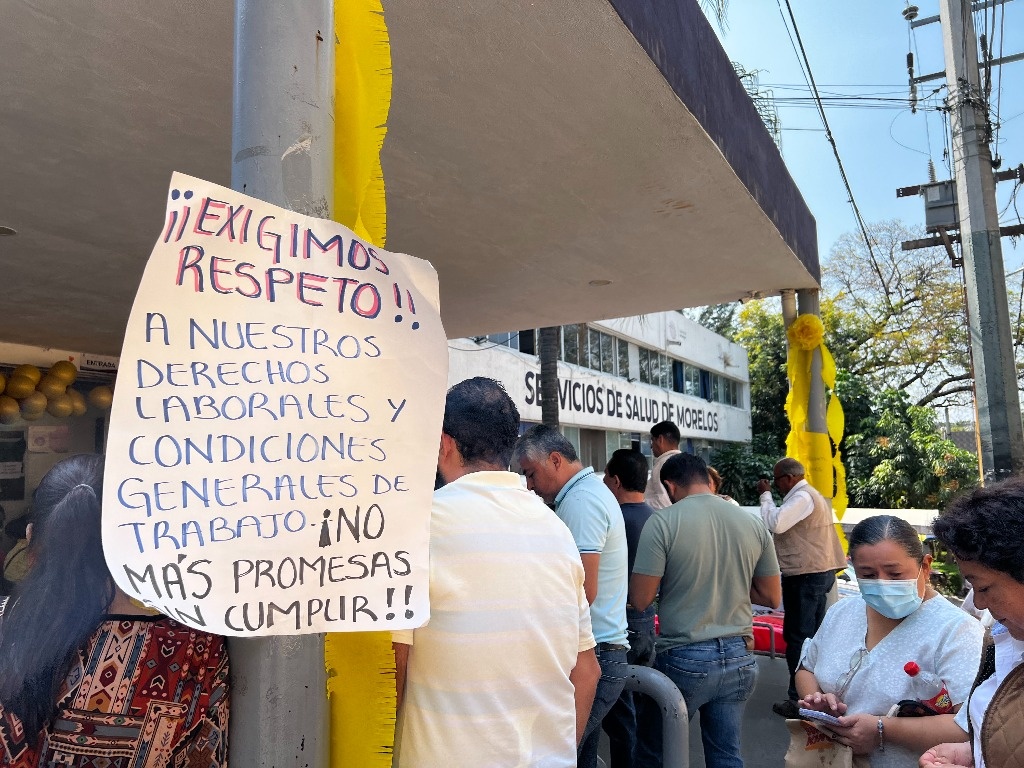 ¡¡EXIGIMOS
RESPETO!!
A NUESTROS
DERECHOS
LABORALES Y
CONDICIONES
GENERALES DE
TRABAJO. ¡NO
MÁS PROMESAS
CUMPLIR!!
SERVICIOS DE SALUD DE MORELOS
ENTRADA